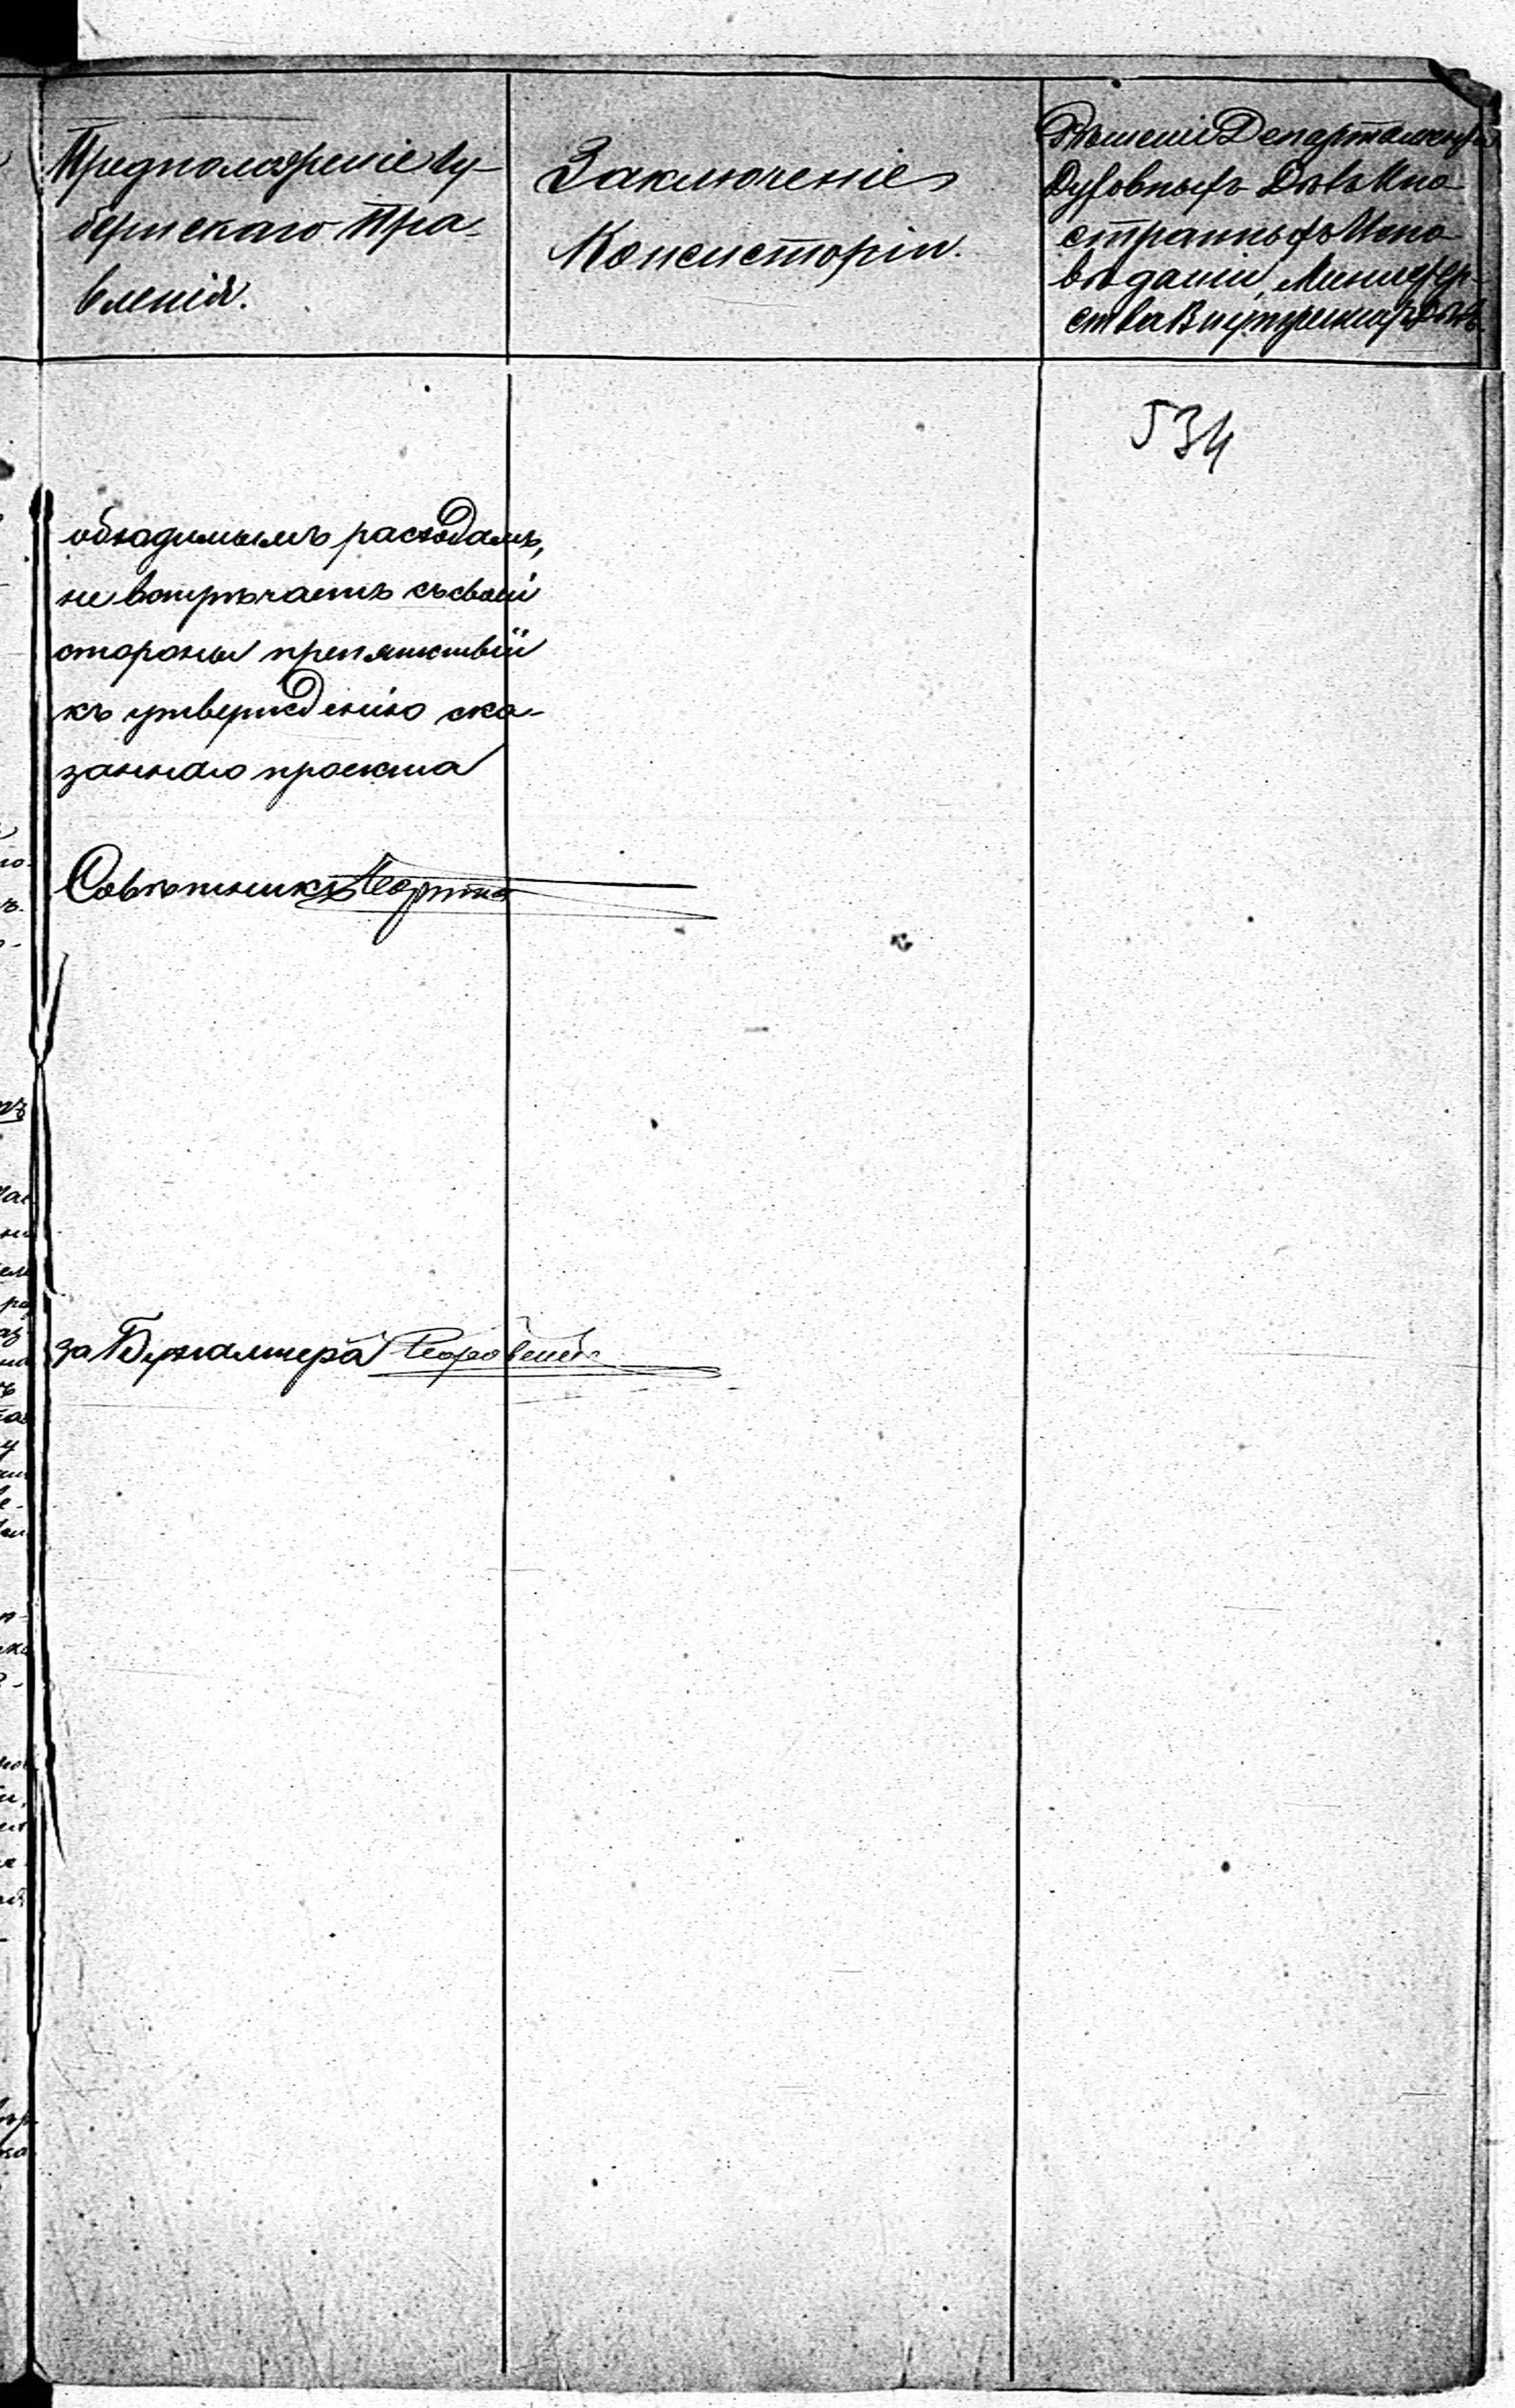 Предположеніе Гу-
бернскаго Пра-
вленія.
Заключеніе
Консисторіи.
Рѣшеніе Департамента
Духовныхъ Дѣлъ Ино-
странныхъ Испо-
вѣданій Министер-
ства Внутреннихъ Дѣлъ
534
обходимымъ расходамъ,
не встрѣчаетъ съ своей
стороны препятствій
къ утвержденію ска-
заннаго проекта
Совѣтникъ
за Бухгалтера